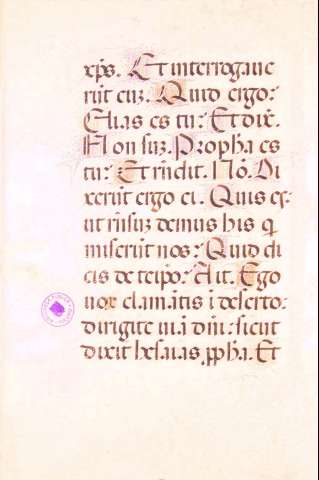 xp̄s. Et interrogaue
rūt euz. Quid ergo?
Elias es tu? Et dix̄.
Non suz. Propha es
tu? Et rn̄dit. Nō. Di
xerūt ergo ei. Quis es?
ut rn̄suz demus his q̄
miserūt nos? Quid di
cis de teipō? Ait. Ego
uox clamātis i deserto?
dirigite uiā dn̄i? sicut
dixit hesaias p̱pha. Et